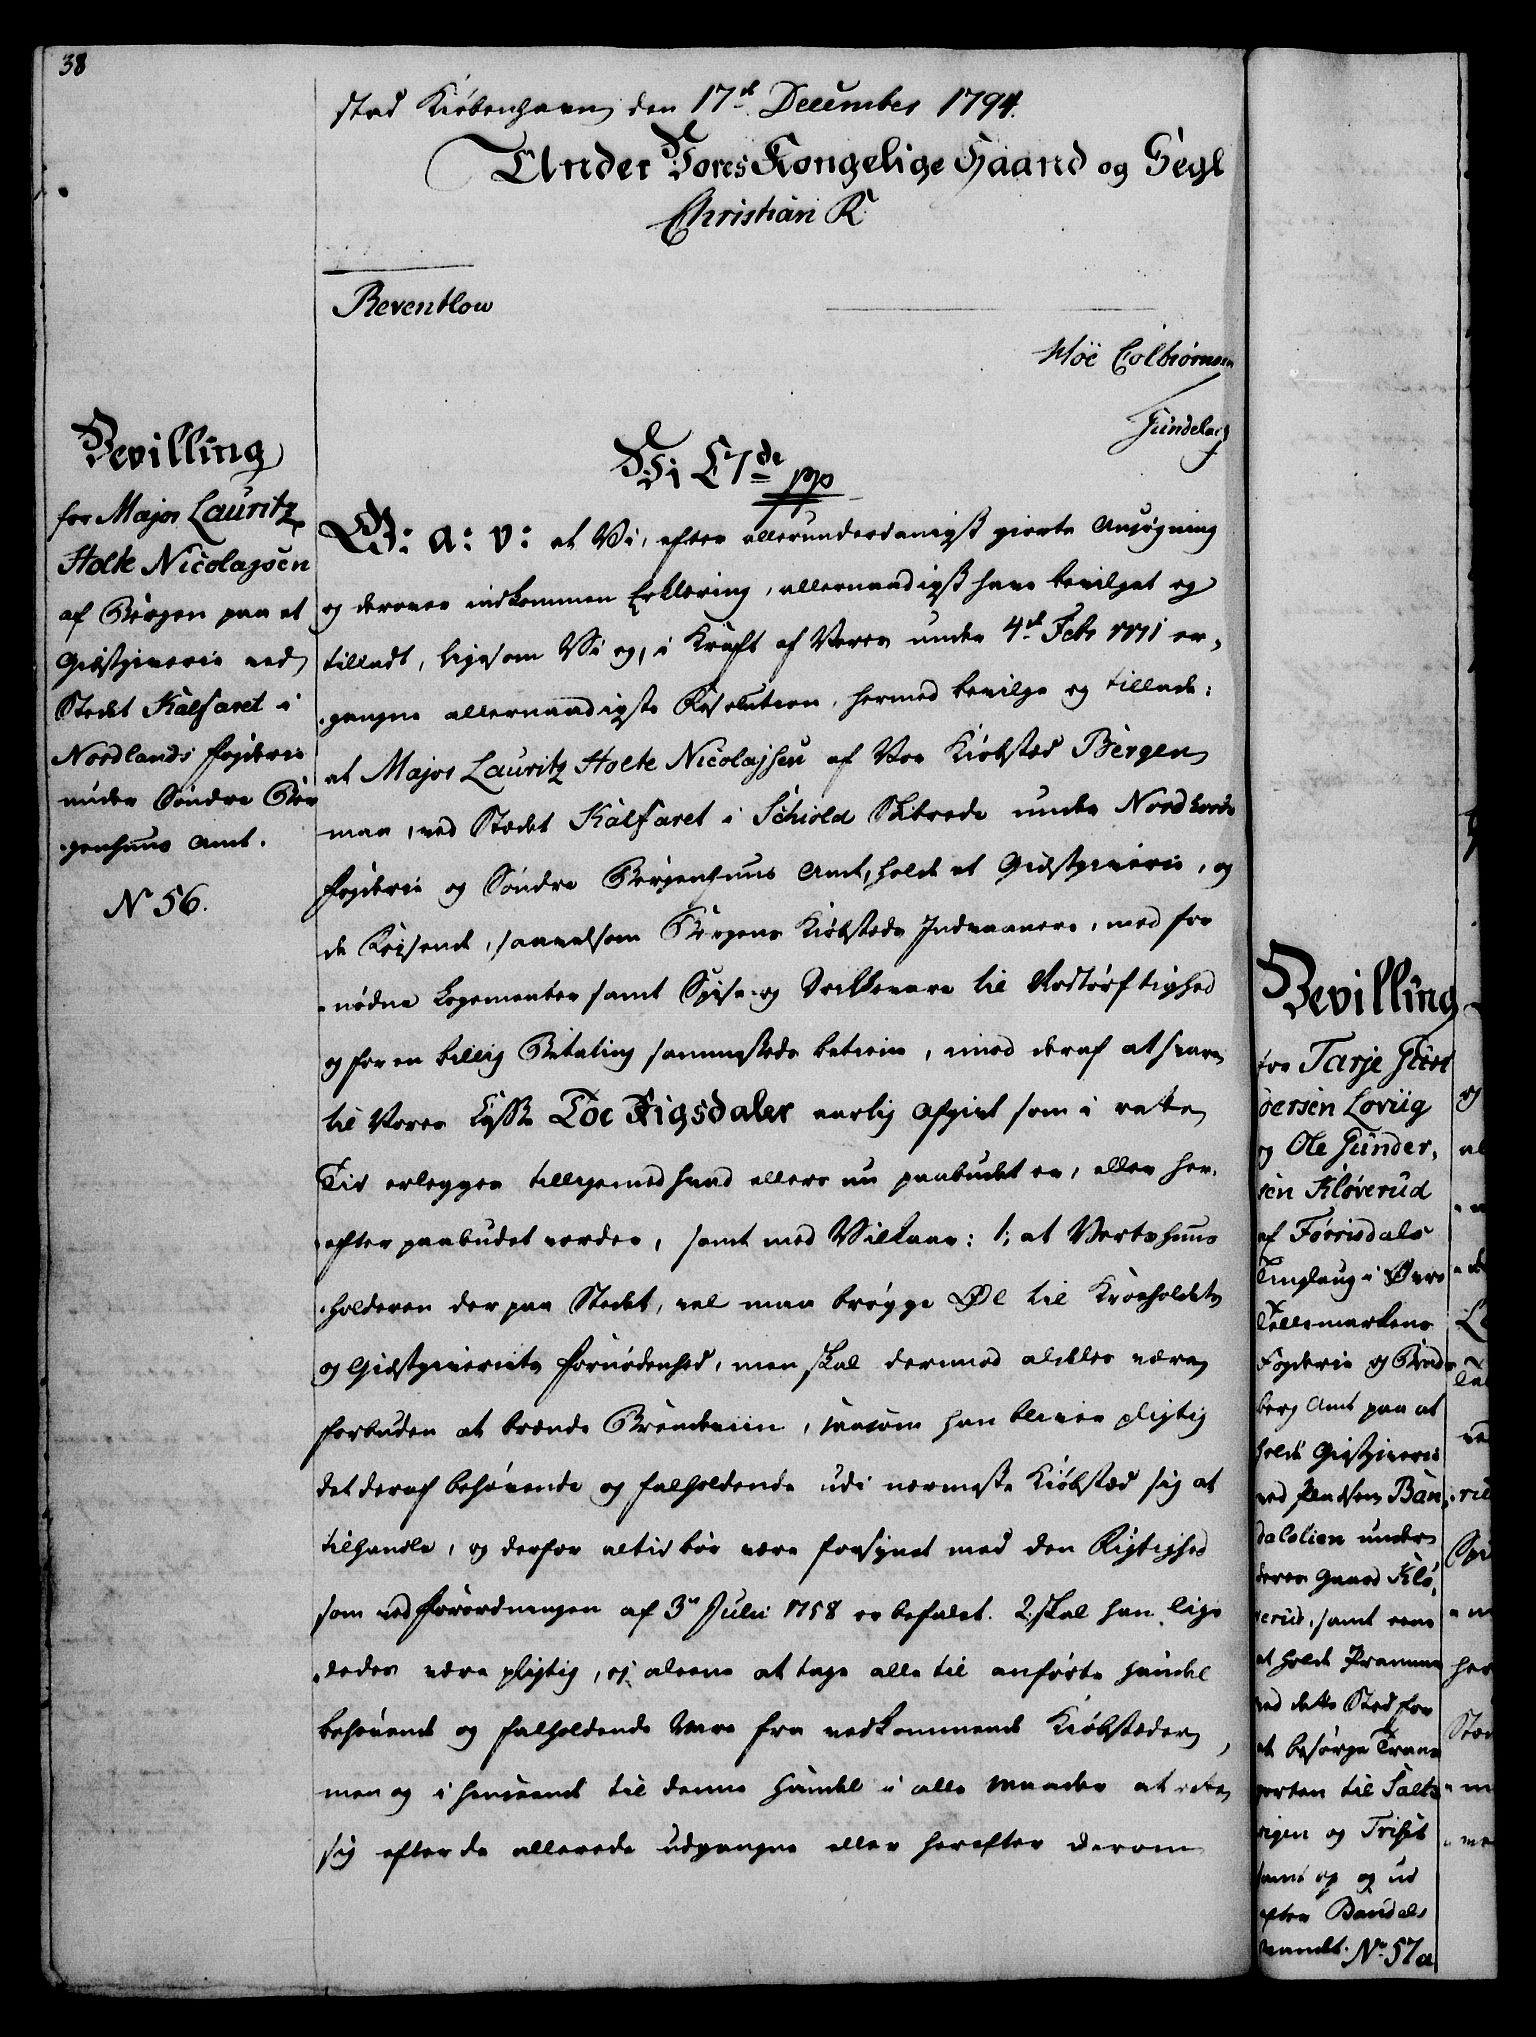 38
stad Kiöbenhavn den 17de December 1794.
Under Vores Kongelige Haand og Segl
Christian R
Reventlow
Moe Colbiørnsen
Gundelach
Bevilling
for Major Lauritz
Holte Nicolajsen
af Bergen paa et
Giestgiverie ved
Stedet Kalfaret i
Nordlands Fogderie
under Söndre Ber
genhuus Amt.
No 56.
Vi C7de pp
G: a: v: at Vi, efter allerunderdanigst giorte Ansøgning
og derover indkommen Erklæring, allernaadigst have bevilget og
tilladt, ligesom Vi og, i Kraft af Vores under 4de Febr 1771 er-
gangne allernaadigste Resolution, hermed bevilge og tillade:
at Major Lauritz Holte Nicolajsen af Vor Kiöbsted Bergen
maa, ved Stedet Kalfaret i Schiold Skibrede under Nordhords
Fogderie og Söndre Bergenhuus Amt, holde et Giestgiverie, og
de Reisende, saavelsom Bergens Kiöbsteds Indvaanere, med for
nödne Logementer samt Spise- og Drikkevare til Nödtörftighed
og for en billig Betaling sammesteds betiene, imod deraf at svare
til Vores Casse Toe Rigsdaler aarlig Afgivt som i rette
Tid erlegges tilligemed hvad ellers nu paabudet er, eller her-
efter paabudet vorder, samt med Vilkaar: 1; at Vertshuus
holderen der paa Stedet, vel maa brygge Øl til Kroeholdets
og Giestgiveriets Fornödenhed, men skal dermed aldeles være
forbuden at brænde Brændeviin, saasom han bliver pligtig
det deraf behövende og falholdende udi nærmeste Kiöbsted sig at
tilhandle, og derfor altid bör være forsynet med den Rigtighed
som ved Forordningen af 3die Julii 1758 er befalet. 2. skal han lige
ledes være pligtig, ej alene at tage alle til anförte Handel
behövende og falholdende Vare fra vedkommende Kiöbstæder,
men og i henseende til denne Handel i alle Maader at rette
sig efter de allerede udgangne eller herefter derom
Bevilling
for Tarje Gun
dersen Loviig
og Ole Gunder-
sen Kløverud
af Förrisdals
Tinglaug i Øvre
Tellemarkens
Fogderie og Brads
berg Amt paa at
holde Giestgiverie
ved Pladsen Ban-
dalslien under
deres Gaard Klø-
verud, samt eene
at holde Pramme
ved dette Sted for
at besörge Trans
porten til Salt
vigen og Triset
samt op og ud
efter Bandals
vandet. No 57 a